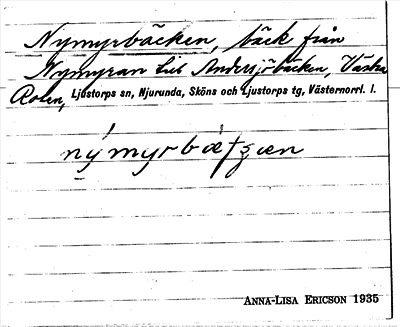 Nymyrbäcken, bäck från
Nymyran till Andersjöbäcken, Västra
Roten, Ljustorps sn, Njurunda, Sköns och Ljustorps tg, Västernorrl. l.
nýmyrbætʂæn
ANNA-LISA ERICSON 1935